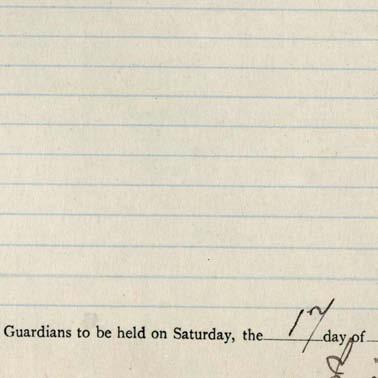 Guardians to be held on Saturday, the 17 day of